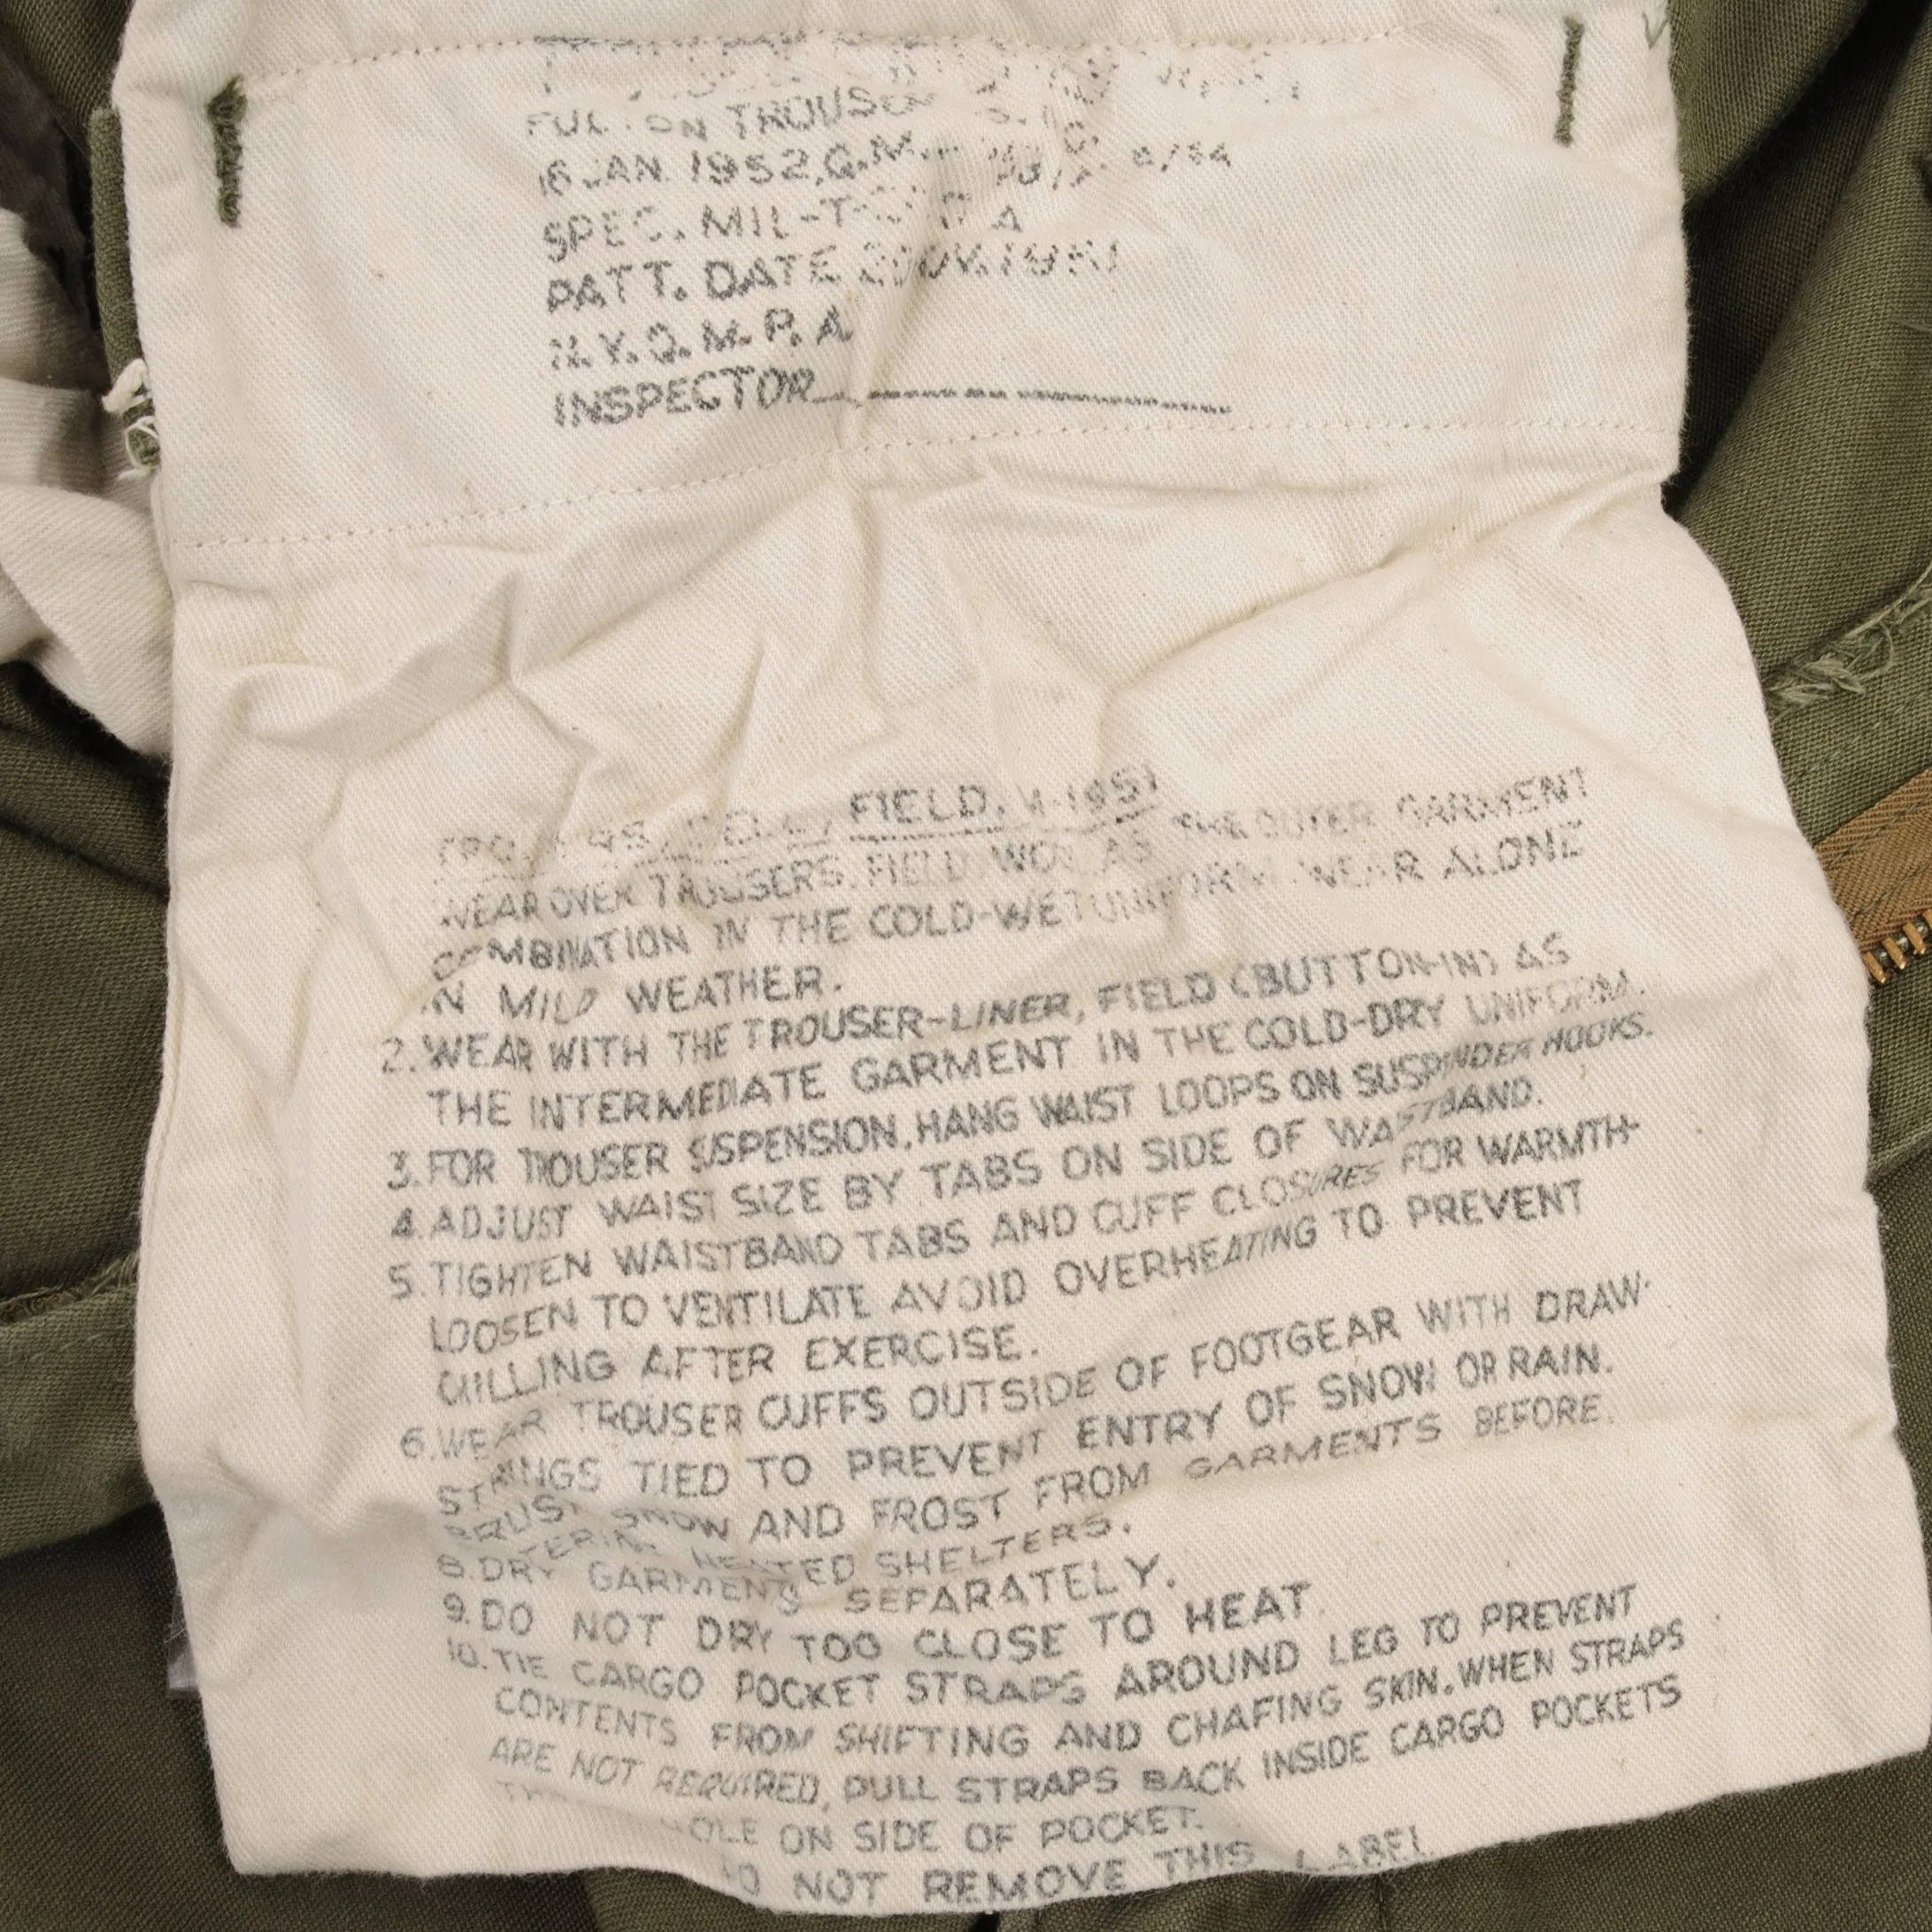 TROUS
16 JAN. 1952, Q.M.
SPEC. MIL-T- A
PATT. DATE
N.Y.Q.M.P.A
INSPECTOR
FIELD, M-1951
WEAR OVER TROUSERS, FIELD AS THE OUTER GARMENT
COMBINATION IN THE COLD-WET UNIFORM. WEAR ALONE
IN MILD WEATHER.
2. WEAR WITH THE TROUSER-LINER, FIELD (BUTTON-IN) AS
THE INTERMEDIATE GARMENT IN THE COLD-DRY UNIFORM.
3. FOR TROUSER SUSPENSION, HANG WAIST LOOPS ON SUSPENDER HOOKS.
4. ADJUST WAIST SIZE BY TABS ON SIDE OF WAISTBAND.
5. TIGHTEN WAISTBAND TABS AND CUFF CLOSURES FOR WARMTH-
LOOSEN TO VENTILATE AVOID OVERHEATING TO PREVENT
CHILLING AFTER EXERCISE.
6. WEAR TROUSER CUFFS OUTSIDE OF FOOTGEAR WITH DRAW-
STRINGS TIED TO PREVENT ENTRY OF SNOW OR RAIN.
BRUSH SNOW AND FROST FROM GARMENTS BEFORE
ENTERING HEATED SHELTERS.
8. DRY GARMENTS SEPARATELY.
9. DO NOT DRY TOO CLOSE TO HEAT.
10. TIE CARGO POCKET STRAPS AROUND LEG TO PREVENT
CONTENTS FROM SHIFTING AND CHAFING SKIN. WHEN STRAPS
ARE NOT REQUIRED, PULL STRAPS BACK INSIDE CARGO POCKETS
ON SIDE OF POCKET.
DO NOT REMOVE THIS LABEL